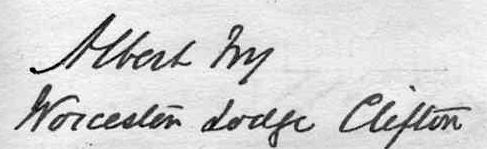 Albert Fry
Worcester Lodge Clifton